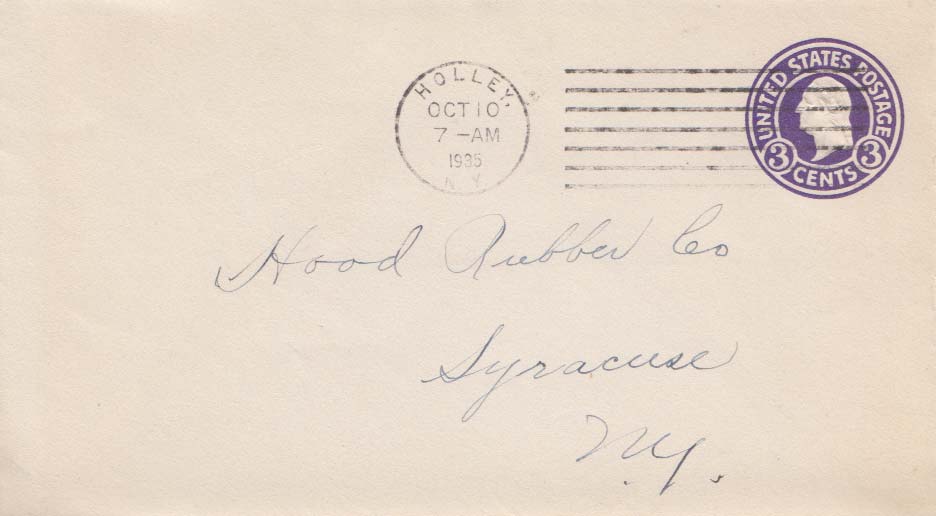 HOLLEY,
OCT 10
7 -AM
1935
N.Y.
UNITED STATES POSTAGE
3 CENTS 3
Hood Rubber Co
Syracuse
N.Y.